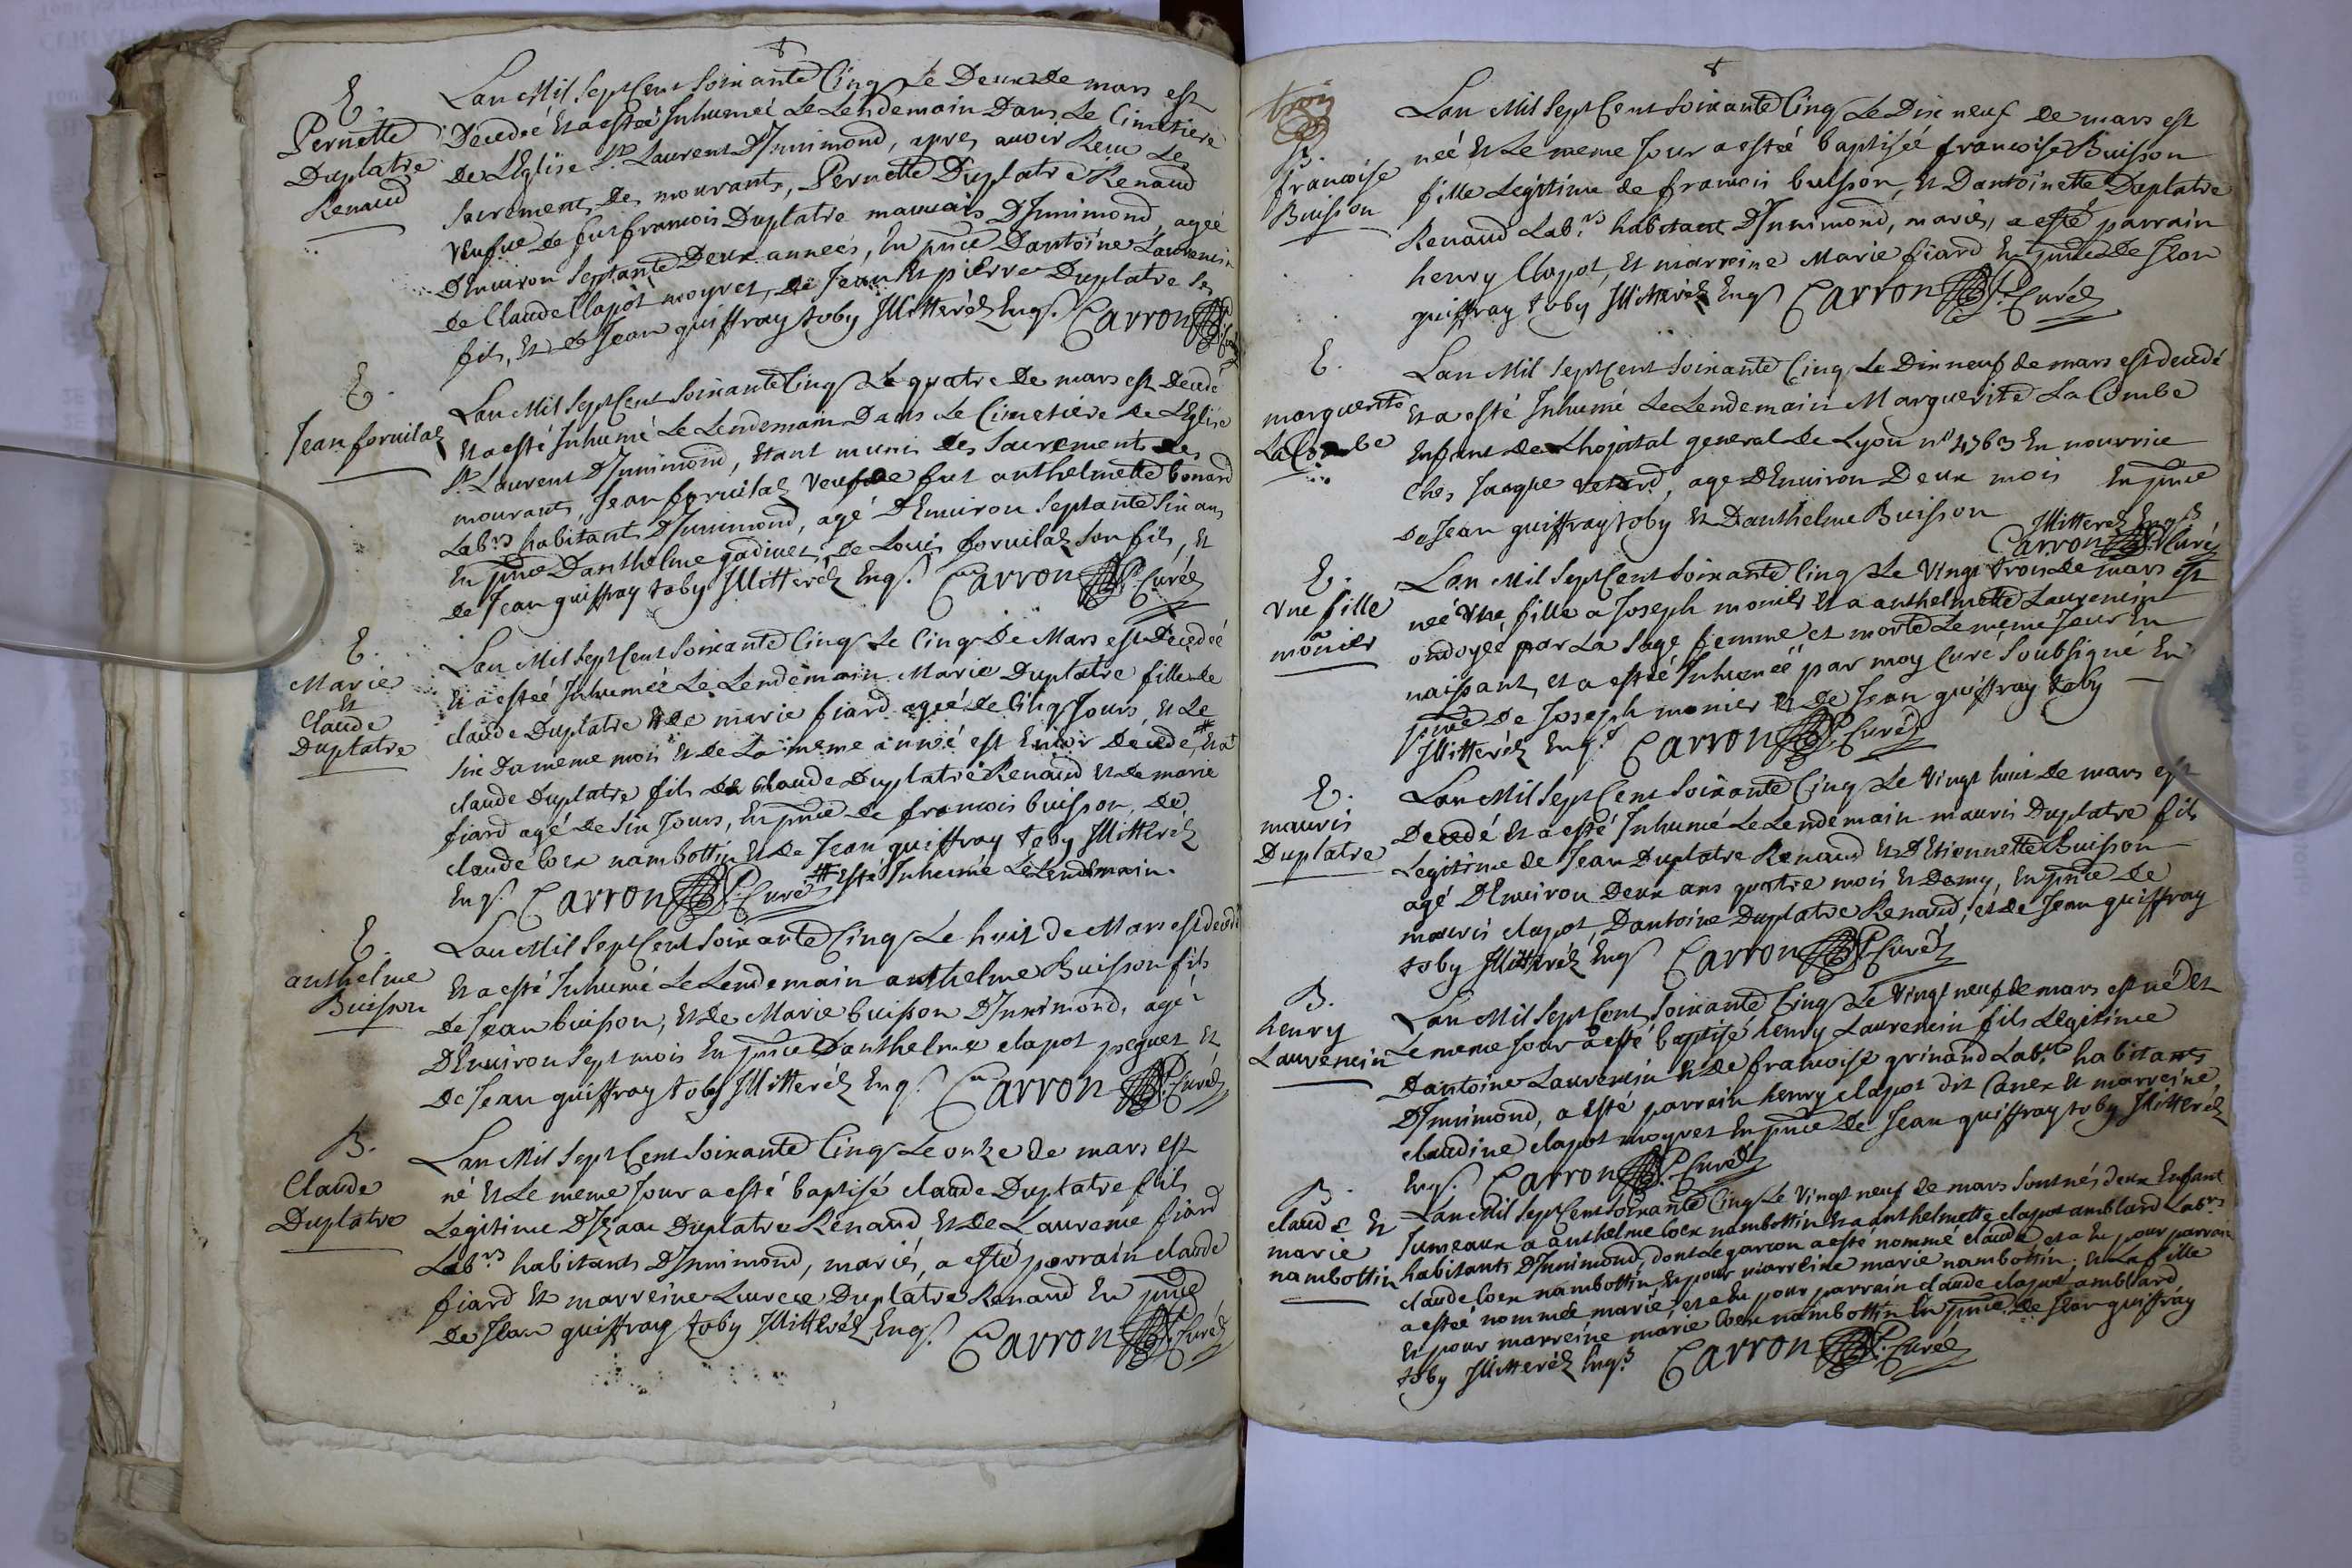 E.
Pernette
Duplatre
Renaud
Lan Mil sept Cent soixante Cinq Le Deux De mars est
Decedeé Et a esteé Inhumeé Le Lendemain Dans Le Cimetiere
De LEglise St Laurent DInnimond, apres avoir Receu Les
sacrements Des mourants, Pernette Duplatre Renaud
veufve de fut francois Duplatre mauvais DInnimond, ageé
DEnviron septante Deux anneés, En pnce Dantoine Laurencin
De Claude Clapot moyret, de Jean Et pierre Duplatre ses
fils, Et de Jean guiffray toby Illitteréz Enqs. Carron P. Curé
E.
Jean forvilaz
Lan Mil sept Cent soixante Cinq Le quatre De mars est Decedé
Et a esté Inhumé Le Lendemain Dans Le Cimetiere de LEglise
St. Laurent DInnimond, Etant munis Des sacrements des
mourants, Jean forvilaz veuf de fut anthelmette bonard
Labrs habitant DInnimond, agé DEnviron septante six ans
En pnce Danthelme gadinet, de Louis forvilaz son fils, Et
de Jean guiffray toby Illitteréz Enqs. Carron P. Curéz
E.
Marie
Et
Claude
Duplatre
Lan Mil sept Cent soixante Cinq Le Cinq De Mars est Decedeé
Et a esteé Inhumeé Le Lendemain Marie Duplatre fille de
claude Duplatre Et de marie fiard ageé de Cinq Jours, Et Le
six Du meme mois Et de La meme anneé est Encor Decedé # Et a
claude Duplatre fils de claude Duplatre Renaud Et de marie
fiard agé de six Jours, En pnce de francois buisson, De
claude Coex nambottin Et de Jean guiffray toby Illitteréz
Enqs. Carron P. Curéz # Esté Inhumé Le Lendemain.
E.
anthelme
Buisson
Lan Mil sept Cent soixante Cinq Le huit de Mars est decedé
Et a esté Inhumé Le Lendemain anthelme Buisson fils
de Jean buisson, Et de Marie buisson DInnimond, agé
DEnviron sept mois En pnce Danthelme clapot peguet Et
De Jean guiffray toby Illitteréz Enqs. Carron P. Curéz
B.
Claude
Duplatre
Lan Mil sept Cent soixante Cinq Le onze de mars est
né Et Le meme Jour a esté baptisé claude Duplatre fils
Legitime DIzaac Duplatre Renaud Et de Laurence fiard
Labrs habitants DInnimond, mariés, a esté parrain claude
fiard Et marreine Lucrece Duplatre Renaud En pnce
de Jean guiffray toby Illitteréz Enqs. Carron P. Curéz
trois
B.
francoise
Buisson
Lan Mil sept Cent soixante Cinq Le Dix neuf de mars est
neé Et Le meme Jour a esteé baptiseé francoise Buisson
fille Legitime de francois buisson, Et Dantoinette Duplatre
Renaud Labrs habitant DInnimond, mariés, a esté parrain
henry Clapot, Et marreine Marie fiard En pnce De Jean
guiffray toby Illitteréz Enqs Carron P. Curéz
E.
marguerite
La Combe
Lan Mil sept Cent soixante Cinq Le Dix neuf de mars est decedé
Et a esté Inhumé Le Lendemain Marguerite La Combe
Enfant de Lhopital general de Lyon no 4563 En nourrice
Ches Jacque age DEnviron Deux mois En pnce
De Jean guiffray toby Et Danthelme Buisson
Illitteréz Enqs
Carron P. Curéz
E.
Vne fille
a
monier
Lan Mil sept Cent soixante Cinq Le vingt trois de mars est
neé vne fille a Joseph monier Et a anthelmette Laurencin
ondoyeé par La sage femme et morte Le meme Jour En
naissant, et a esteé Inhumeé par moy Curé soubsigné En
pnce De Joseph monier Et de Jean guiffray toby
Illitteréz Enqs Carron P. Curéz
E.
mauris
Duplatre
Lan Mil sept Cent soixante Cinq Le vingt huit de mars est
Decedé Et a esté Inhumé Le Lendemain mauris Duplatre fils
Legitime de Jean Duplatre Renaud Et DEtiennette Buisson
agé DEnviron Deux ans quatre mois Et Demy, En pnce De
mauris clapot, Dantoine Duplatre Renaud, et de Jean guiffray
toby Illitteréz Enqs Carron P. Curéz
B.
henry
Laurencin
Lan Mil sept Cent soixante Cinq Le vingt neuf de mars est né Et
Le meme Jour a esté baptisé henry Laurencin fils Legitime
Dantoine Laurencin Et de francoise grinand Labrs habitants
DInnimond, a esté parrain henry clapot dit Canex Et marreine
claudine clapot moyret En pnce de Jean guiffray toby Illitteréz
Enqs. Carron P. Curéz
B.
claude Et
marie
nambottin
Lan Mil sept Cent soixante Cinq Le vingt neuf de mars sont nés deux Enfant
Jumeaux a anthelme Coex nambottin Et a anthelmette clapot amblard Labrs
habitants DInnimond, dont Le garcon a esté nommé claude, et a Eu pour parrain
claude Coex nambottin Et pour marreine marie nambottin, Et La fille
a esteé nommeé marie, et a Eu pour parrain claude clapot amblard
Et pour marreine marie Coex nambottin En pnce de Jean guiffray
toby Illitteréz Enqs Carron P. Curéz